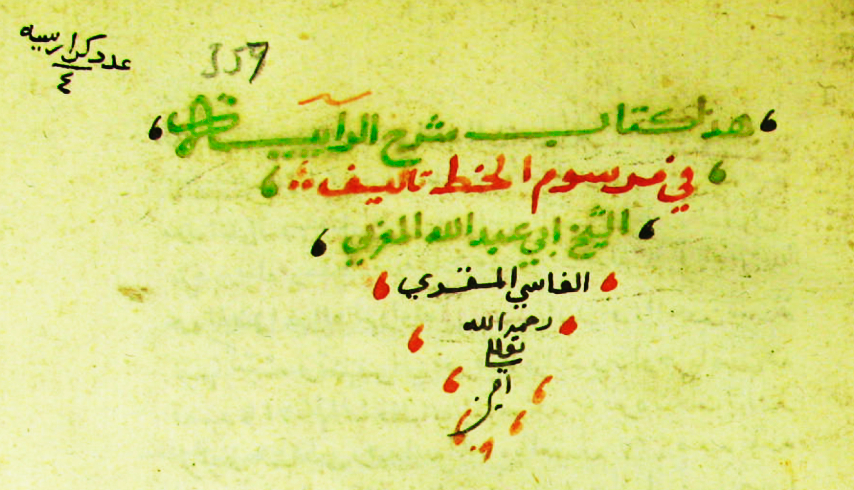 عدد كراريسه
٤
357
هذا كتاب شرح الرائية
في مرسوم الخط تاليف
الشيخ ابي عبد الله المغربي
الفاسي المقري
رحمه الله
تعالى
امين